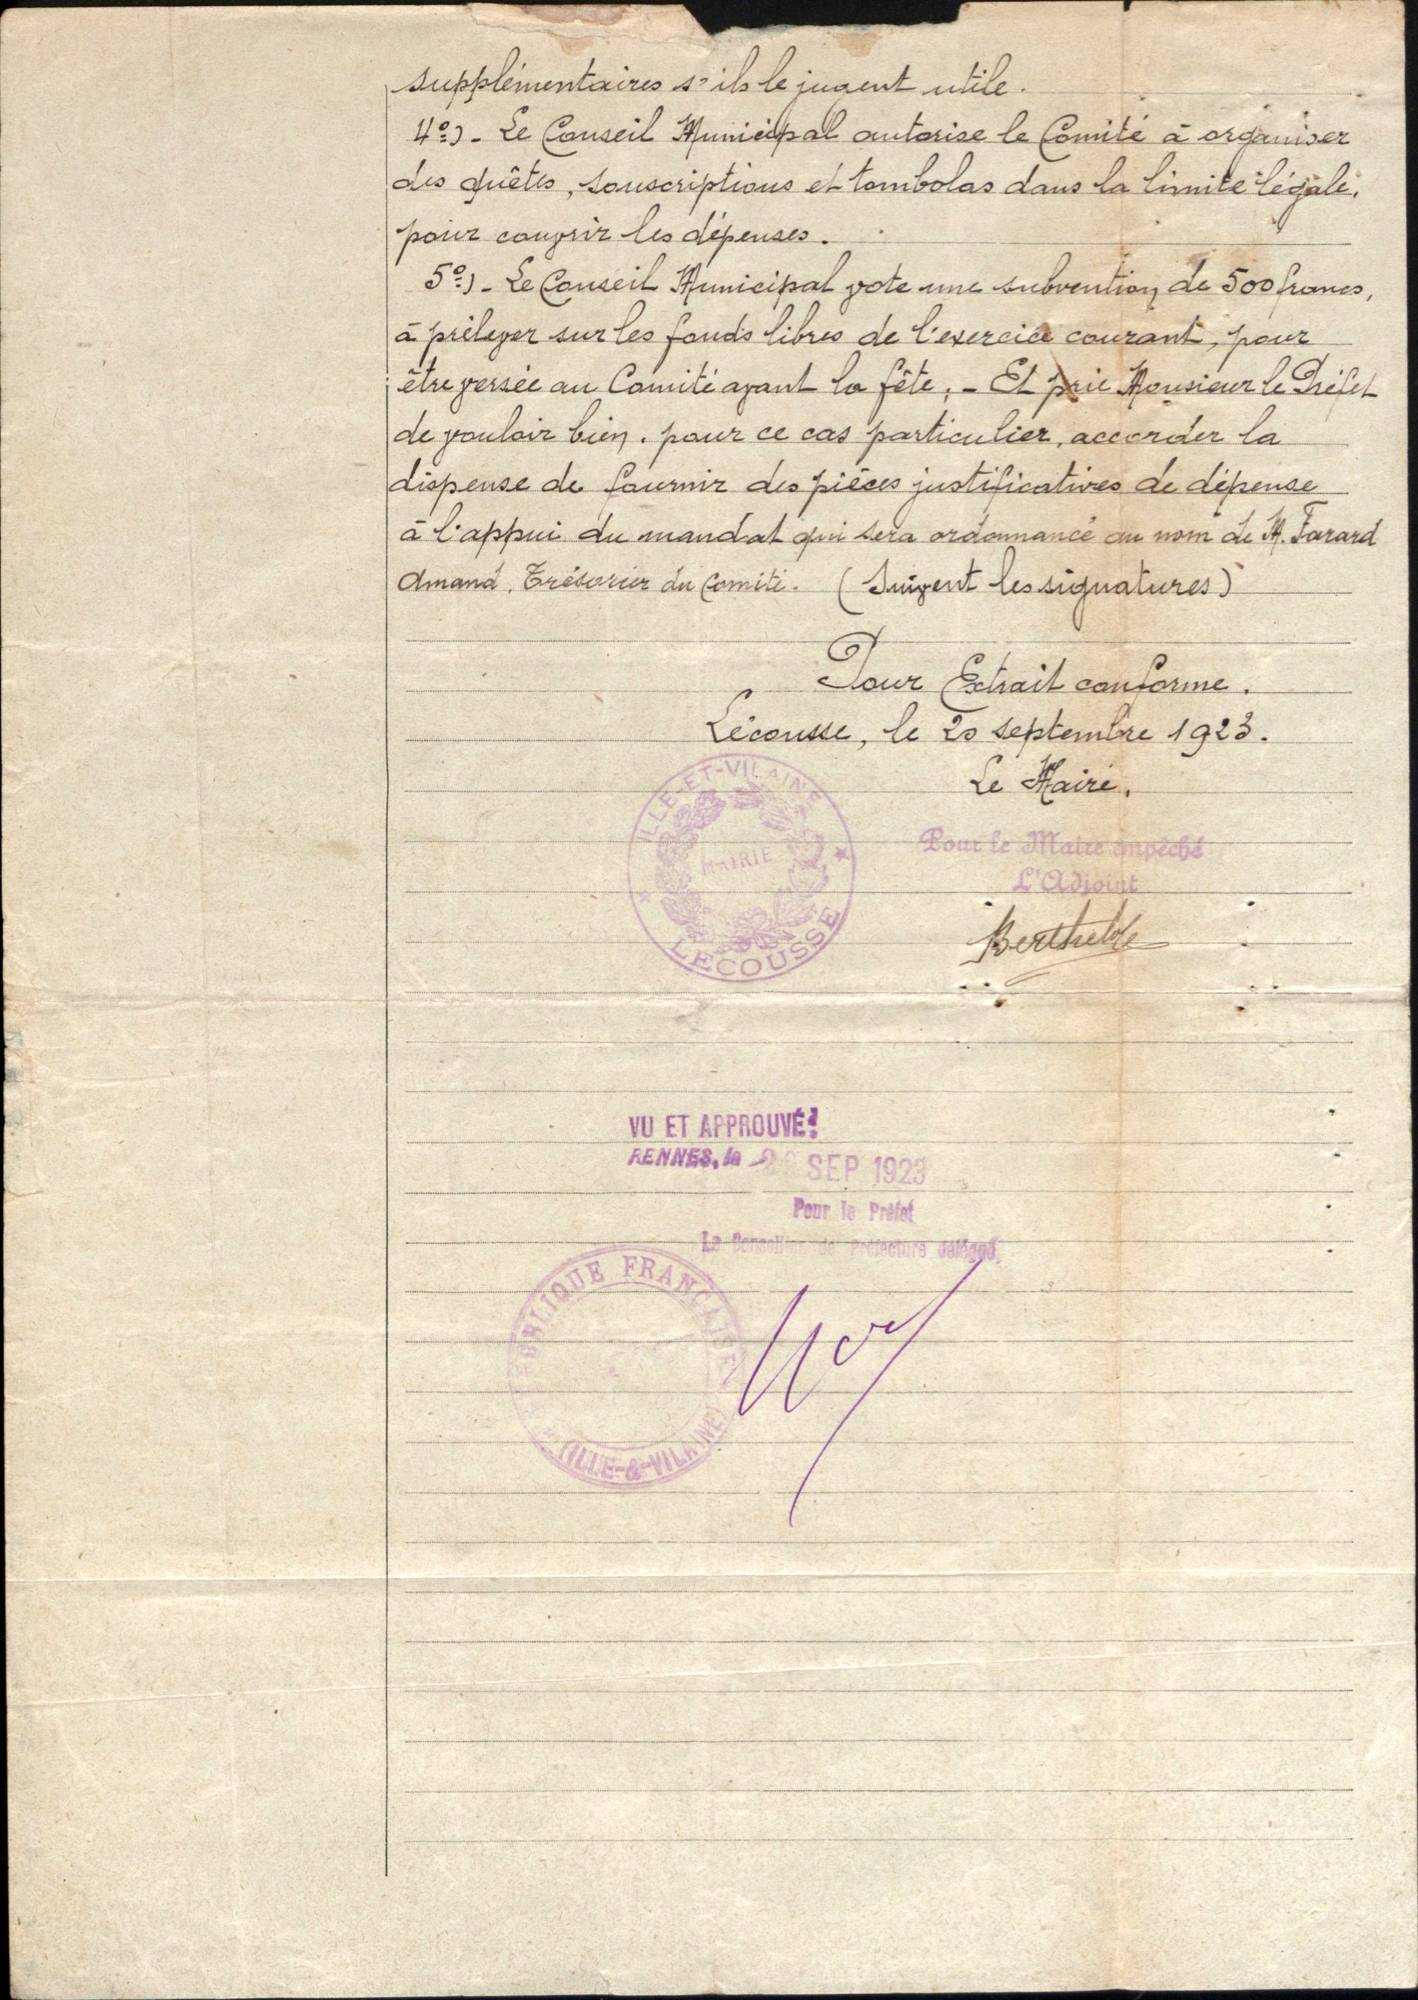 supplémentaires s'ils le jugent utile.
4º) - Le Conseil Municipal autorise le Comité à organiser
des quêtes, souscriptions et tombolas dans la limite légale,
pour couvrir les dépenses.
5º) - Le Conseil Municipal vote une subvention de 500 francs,
à prélever sur les fonds libres de l'exercice courant, pour
être versée au Comité avant la fête; - Et prie Monsieur le Préfet
de vouloir bien, pour ce cas particulier, accorder la
dispense de fournir des pièces justificatives de dépense
à l'appui du mandat qui sera ordonnancé au nom de M. Farard
Amand, Trésorier du Comité. (Suivent les signatures)
Pour Extrait conforme.
Lécousse, le 20 septembre 1923.
Le Maire,
ILLE-ET-VILAINE
MAIRIE
LECOUSSE
Pour le Maire empêché
L'Adjoint
VU ET APPROUVÉ:
RENNES, le SEP 1923
Pour le Préfet
Le Conseiller de Préfecture délégué,
RÉPUBLIQUE FRANÇAISE
(ILLE-&-VILAINE)